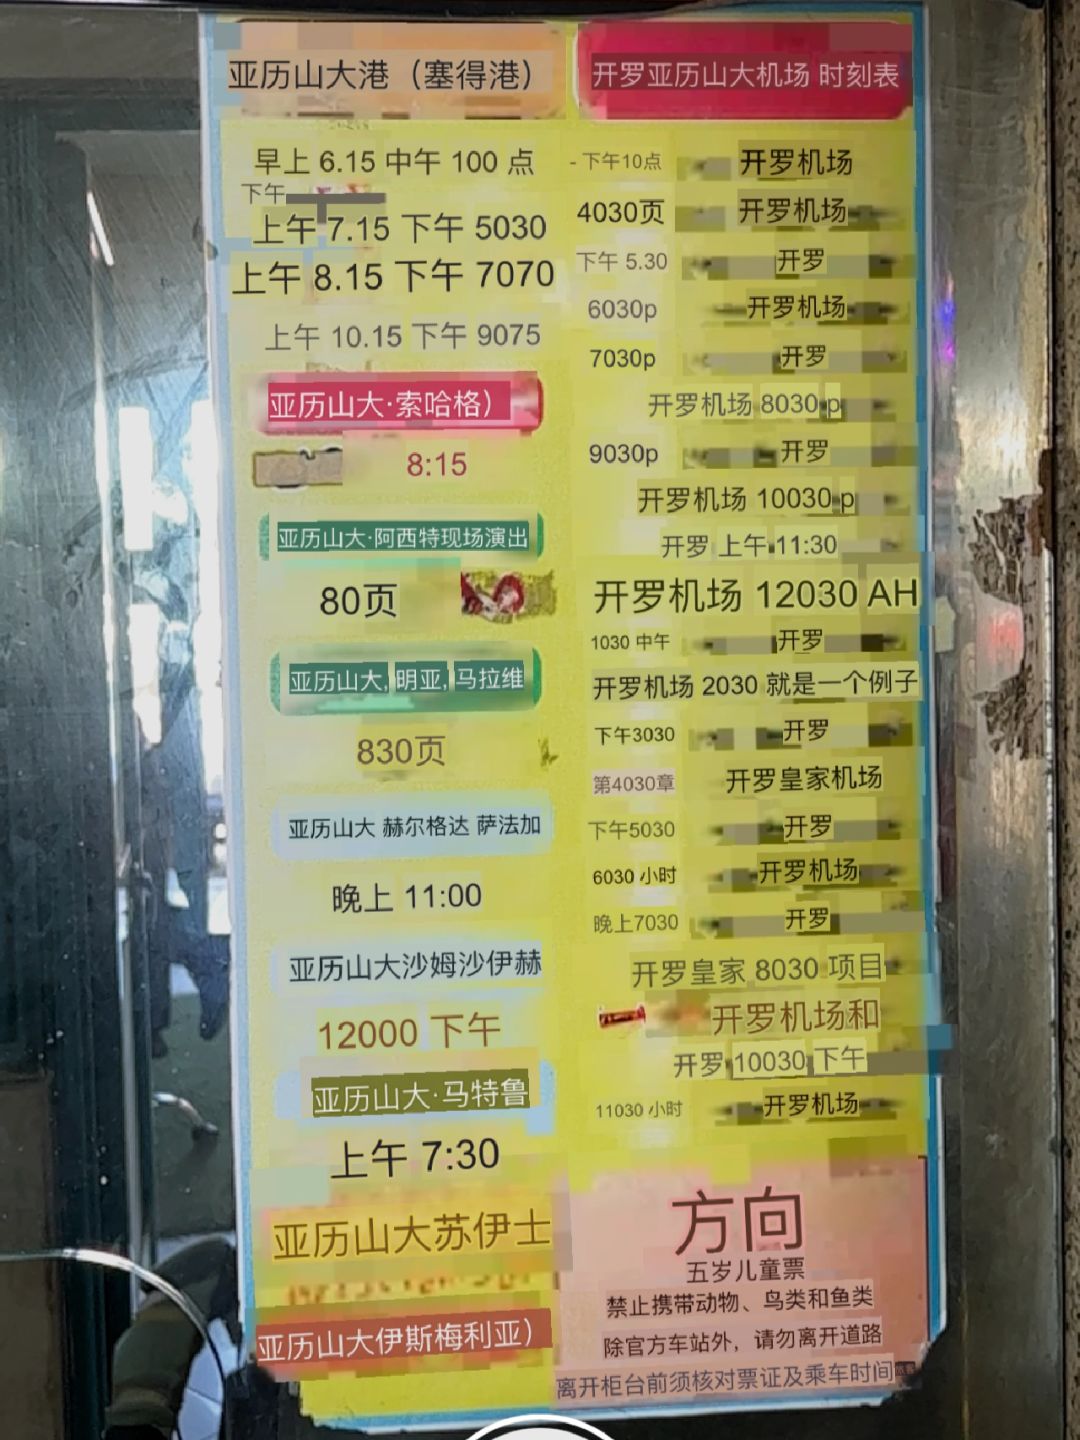 亚历山大港（塞得港）
早上 6.15 中午 100 点
下午
上午 7.15 下午 5030
上午 8.15 下午 7070
上午 10.15 下午 9075
亚历山大·索哈格）
8:15
亚历山大·阿西特现场演出
80页
亚历山大, 明亚, 马拉维
830页
亚历山大 赫尔格达 萨法加
晚上 11:00
亚历山大沙姆沙伊赫
12000 下午
亚历山大·马特鲁
上午 7:30
亚历山大苏伊士
亚历山大伊斯梅利亚）
开罗亚历山大机场 时刻表
- 下午10点 开罗机场
4030页 开罗机场
下午 5.30 开罗
6030p 开罗机场
7030p 开罗
开罗机场 8030 p
9030p 开罗
开罗机场 10030 p
开罗 上午 11:30
开罗机场 12030 AH
1030 中午 开罗
开罗机场 2030 就是一个例子
下午3030 开罗
第4030章 开罗皇家机场
下午5030 开罗
6030 小时 开罗机场
晚上7030 开罗
开罗皇家 8030 项目
开罗机场和
开罗 10030 下午
11030 小时 开罗机场
方向
五岁儿童票
禁止携带动物、鸟类和鱼类
除官方车站外，请勿离开道路
离开柜台前须核对票证及乘车时间